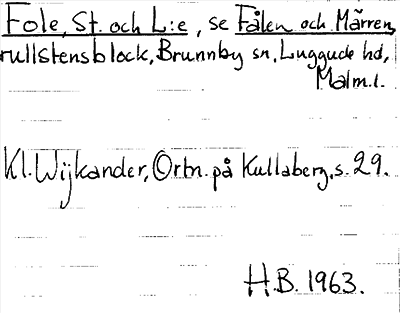 Fole, St. och L:e, se Fålen och Märren,
rullstensblock, Brunnby sn, Luggude hd,
Malm.l.
Kl. Wijkander, Ortn. på Kullaberg, s. 29.
H.B. 1963.